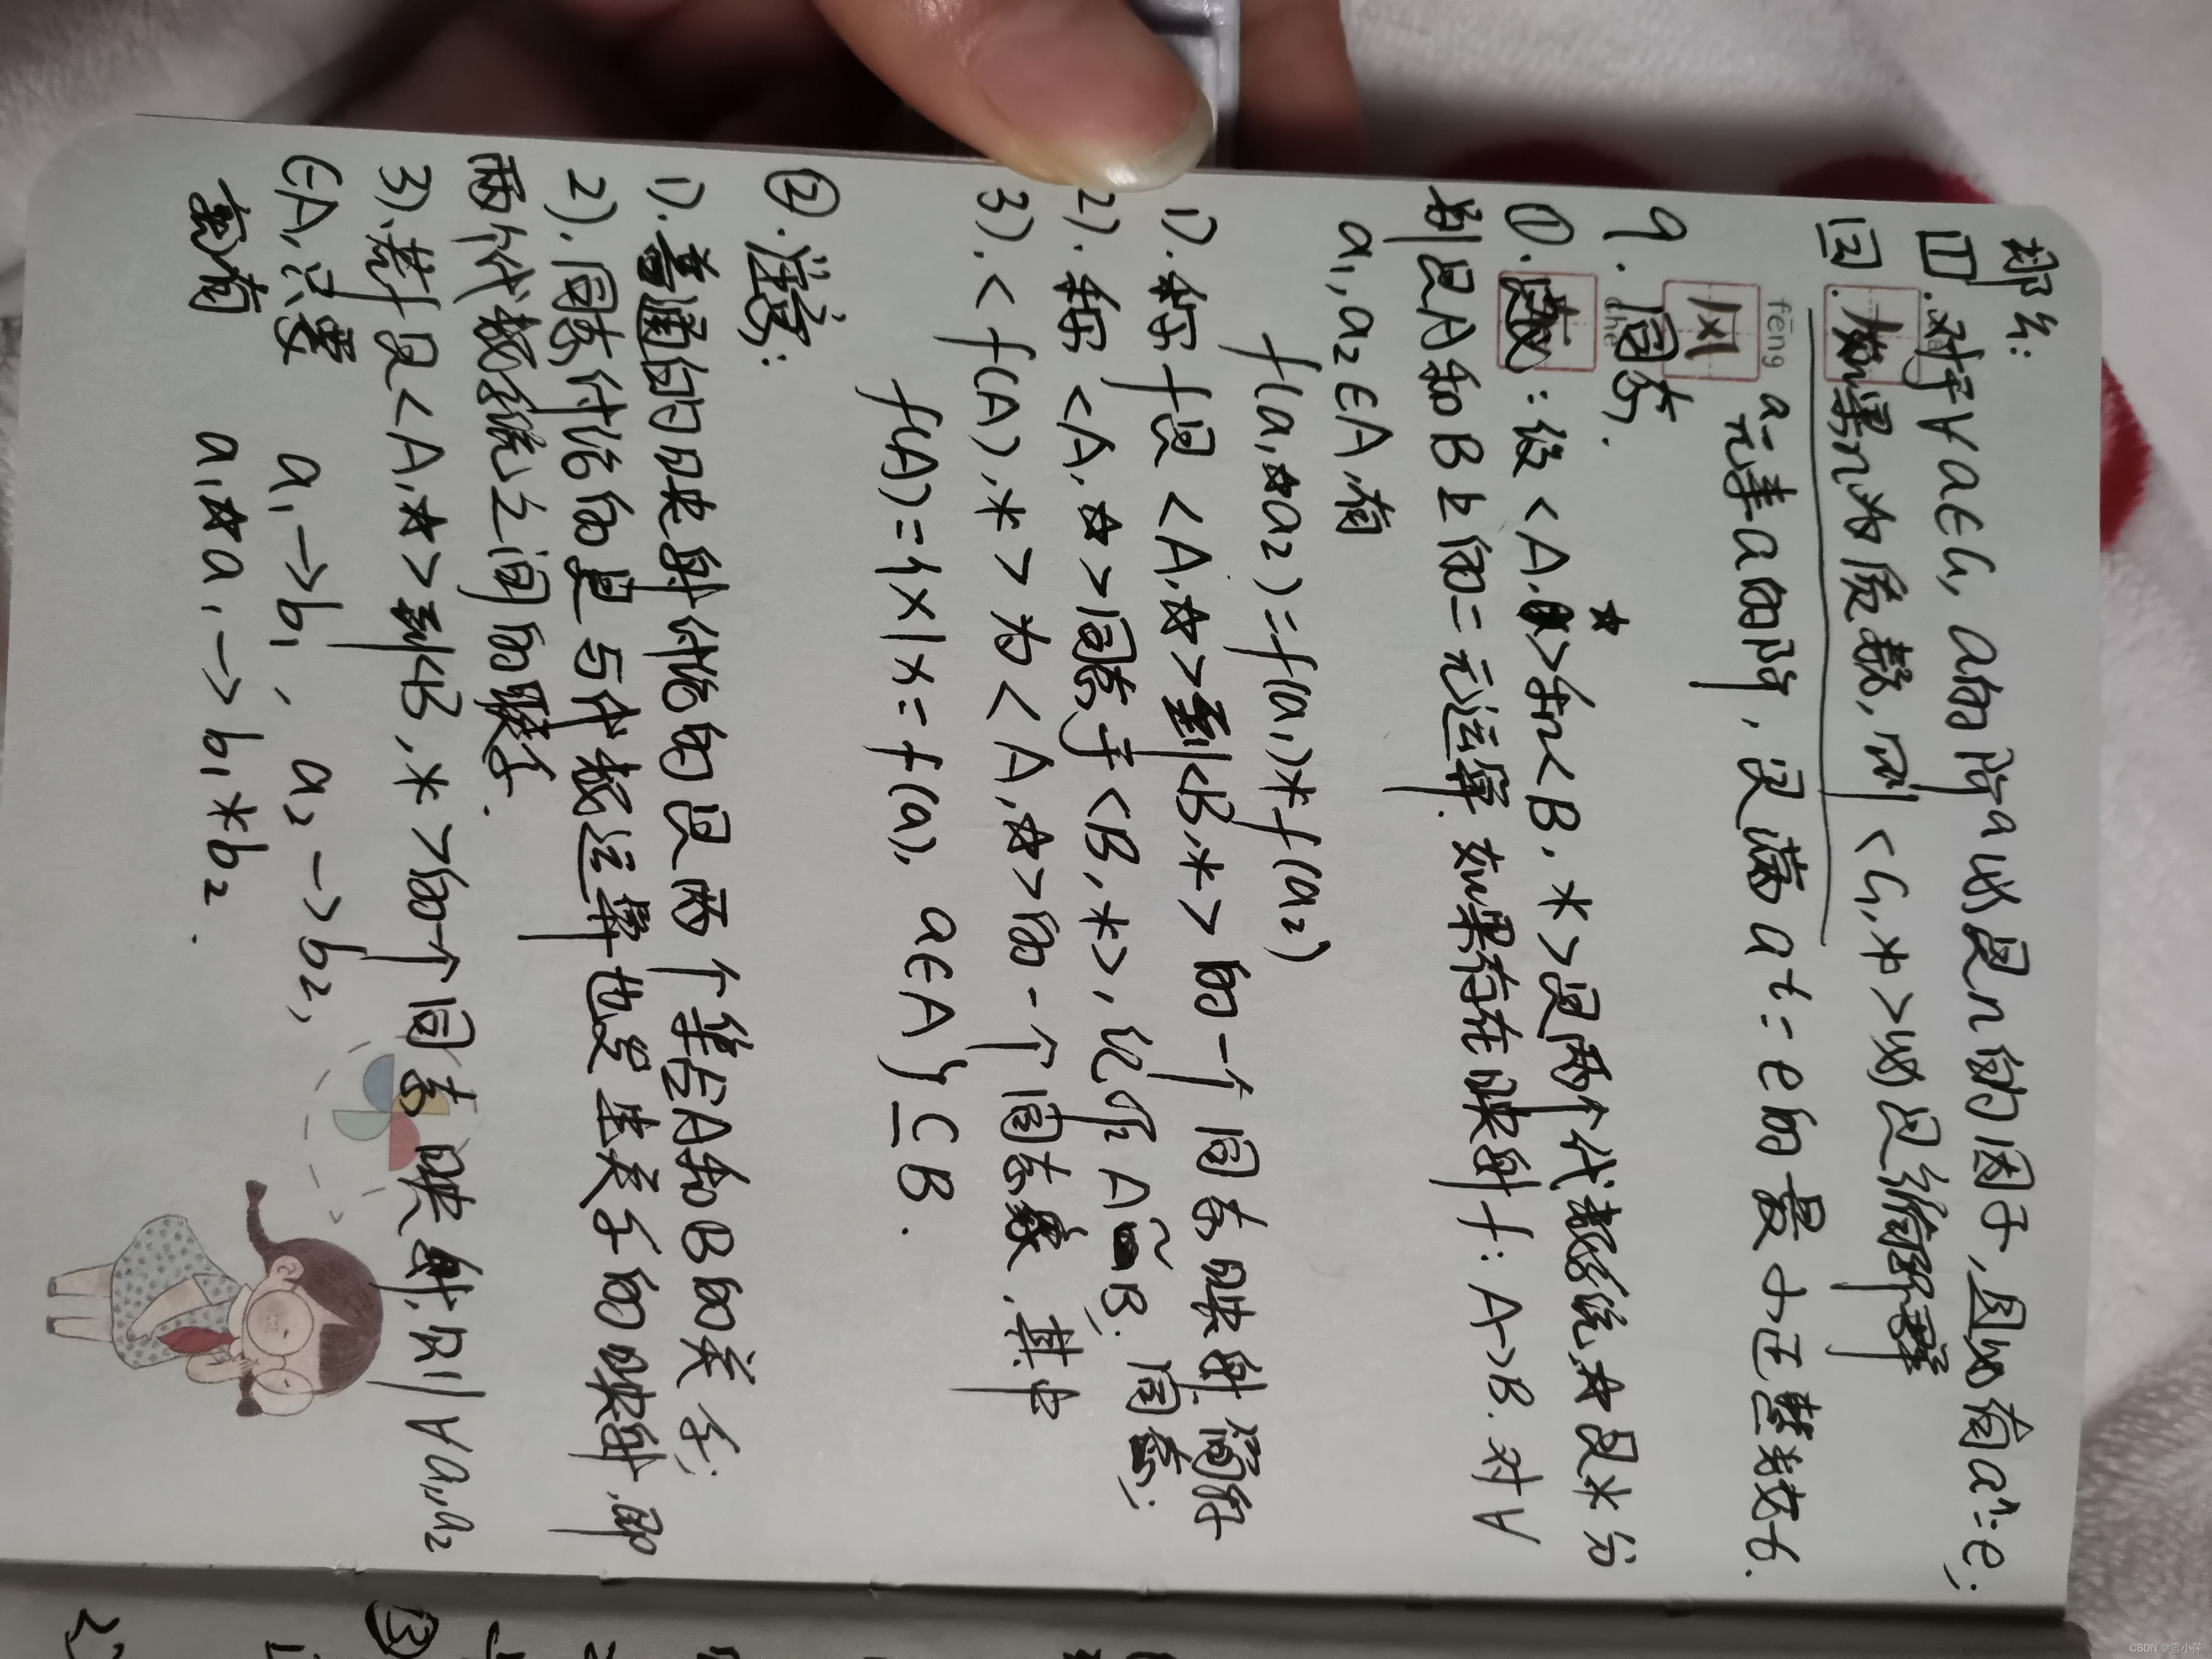 那么:
①.对于∀a∈G, a的阶a必是n的因子,且必有aⁿ=e;
②.如果n为质数,则<G,*>必是循环群
feng
a-元素a的阶,是满aᵗ=e的最小正整数t.
风
9.同态.
che
①.定义:设<A,☆>和<B,*>是两个代数系统,☆是*分
别是A和B上的二元运算.如果存在映射f:A→B.对∀
a₁,a₂∈A,有
f(a₁☆a₂)=f(a₁)*f(a₂)
1).称f是<A,☆>到<B,*>的一个同态映射.简称
2).称<A,☆>同态于<B,*>,记作A~B.同态;
3).<f(A),*>为<A,☆>的一个同态象,其中
f(A)={x|x=f(a),a∈A}⊆B.
②.注意:
1).普通的映射讨论的是两个集合A和B的关系;
2).同态讨论的是与代数运算也发生关系的映射,即
两个代数系统之间的联系.
3).若f是<A,☆>到<B,*>的一个同态映射,则∀a₁,a₂
∈A,只要 a₁→b₁, a₂→b₂,
就有 a₁☆a₁→b₁*b₂.
③
CSDN @雪小萍